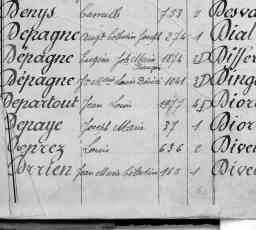 Denys Camille 753 2 Desva
Depagne Augte Célestin Joseph 274 1 Dial
Dépagne Eugène Jh Marie 1874 Differ
Dépagne Louis Désiré 1041 Ding
Departout Jean Louis 1977 Dior
Depaye Joseph Marie 37 1 Dior
Deprez Louis 636 2 Dive
Derrien Jean Marie Célestin 1 Dive